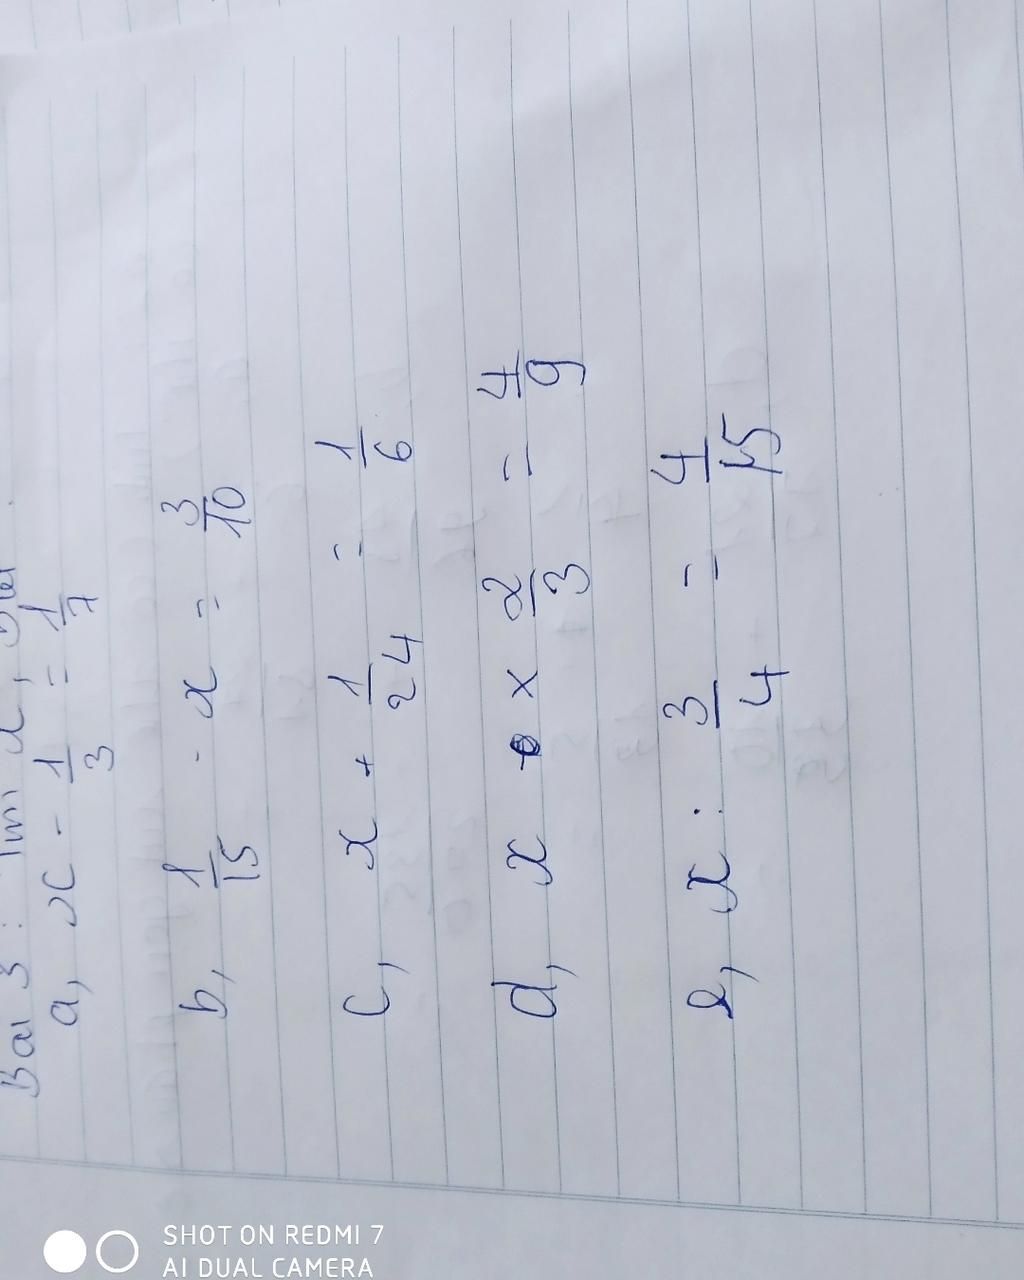 Bài 3: Tìm x, biết
a, x - 1/3 = 1/7
b, 1/15 - x = 3/10
c, x + 1/24 = 1/6
d, x × 2/3 = 4/9
e, x : 3/4 = 4/15
SHOT ON REDMI 7
AI DUAL CAMERA